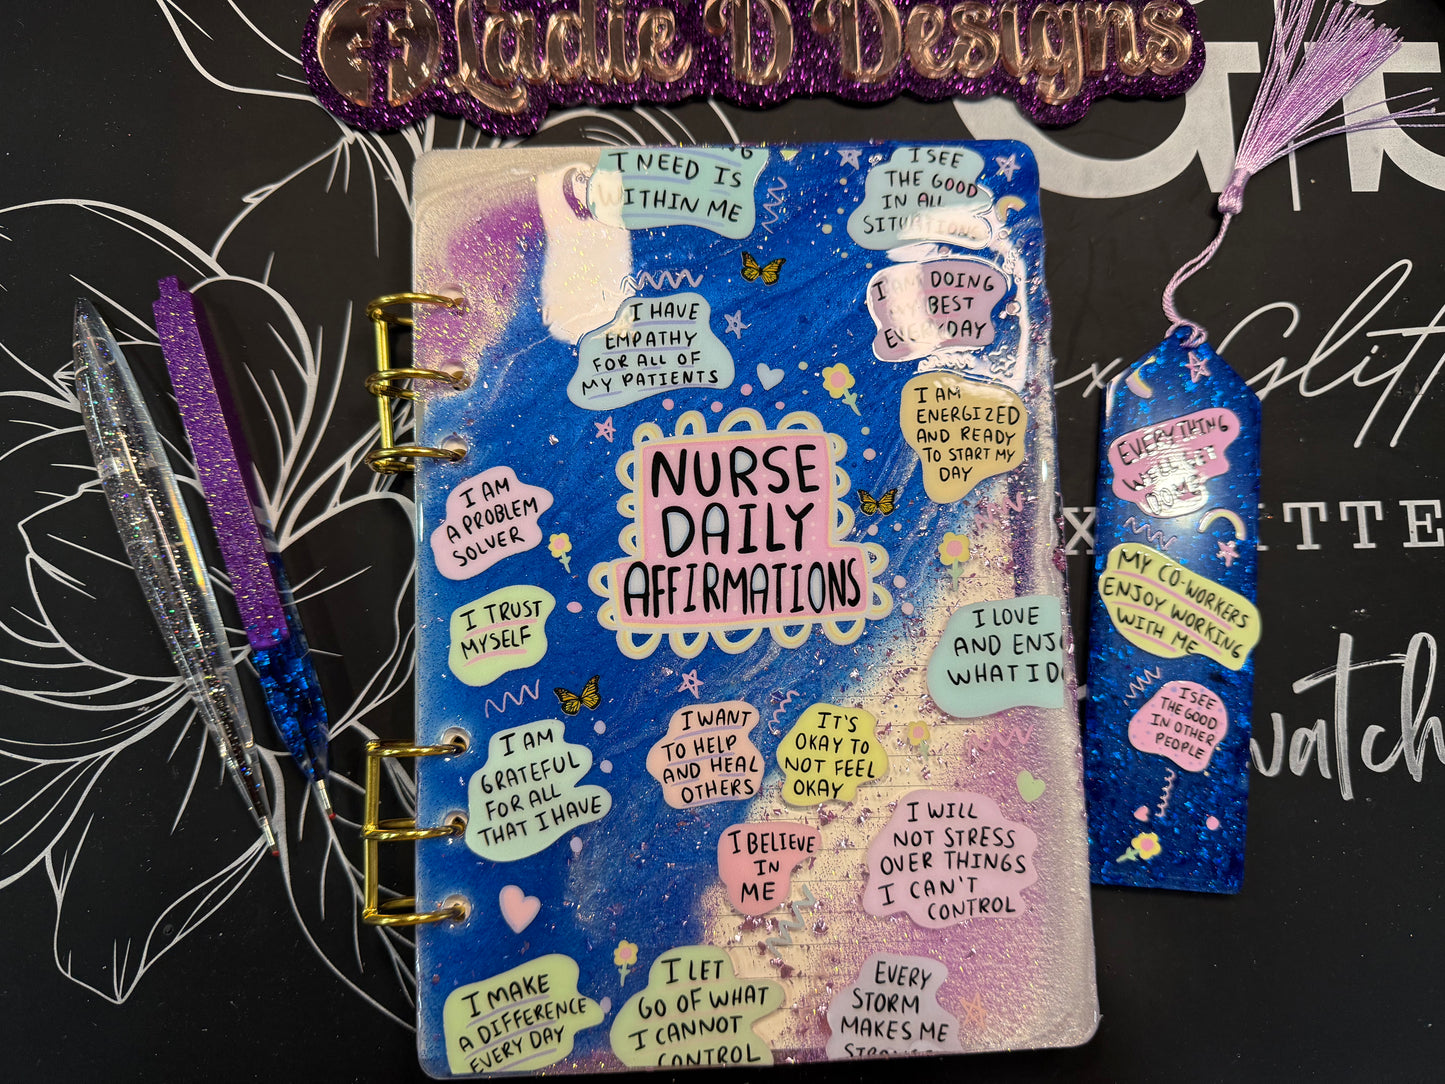 Ladie D Designs
I NEED IS
WITHIN ME
I SEE
THE GOOD
IN ALL
SITUATIONS
I AM DOING
MY BEST
EVERYDAY
I HAVE
EMPATHY
FOR ALL OF
MY PATIENTS
I AM
ENERGIZED
AND READY
TO START MY
DAY
NURSE
DAILY
AFFIRMATIONS
I AM
A PROBLEM
SOLVER
I TRUST
MYSELF
I LOVE
AND ENJO
WHAT I DO
I AM
GRATEFUL
FOR ALL
THAT I HAVE
I WANT
TO HELP
AND HEAL
OTHERS
IT'S
OKAY TO
NOT FEEL
OKAY
I BELIEVE
IN
ME
I WILL
NOT STRESS
OVER THINGS
I CAN'T
CONTROL
I MAKE
A DIFFERENCE
EVERY DAY
I LET
GO OF WHAT
I CANNOT
CONTROL
EVERY
STORM
MAKES ME
EVERYTHING
WILL GET
DONE
MY CO-WORKERS
ENJOY WORKING
WITH ME
I SEE
THE GOOD
IN OTHER
PEOPLE
x Glitt
ITTE
watch